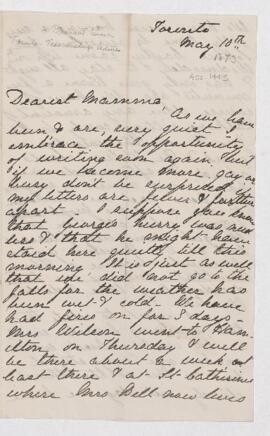 Toronto
May 10th
1893
Dearest Mamma,
As we have
been & are, very quiet I
embrace the opportunity
of writing soon again but
if we become more gay or
busy don't be surprised if
my letters are fewer & further
apart. I suppose you know
that George's hurry was
& that he might have
staid here quietly till this
morning. It is just as well
that we did not go to the
falls for the weather has
been wet & cold. We have
had fires on for 3 days.
Mrs Wilson went to Ham-
ilton on Thursday & will
be there about a week or
last there & at St Catharines
where Mrs Bell now lives